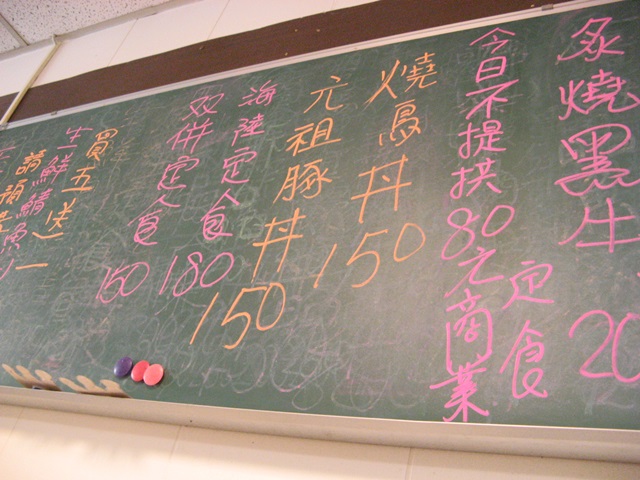 炙燒黑牛 20
今日不提拱80元商業定食
燒鳥丼 150
元祖豚丼 150
海陸定食 180
双併定食 150
買五送一
生鮮鯖魚
請預